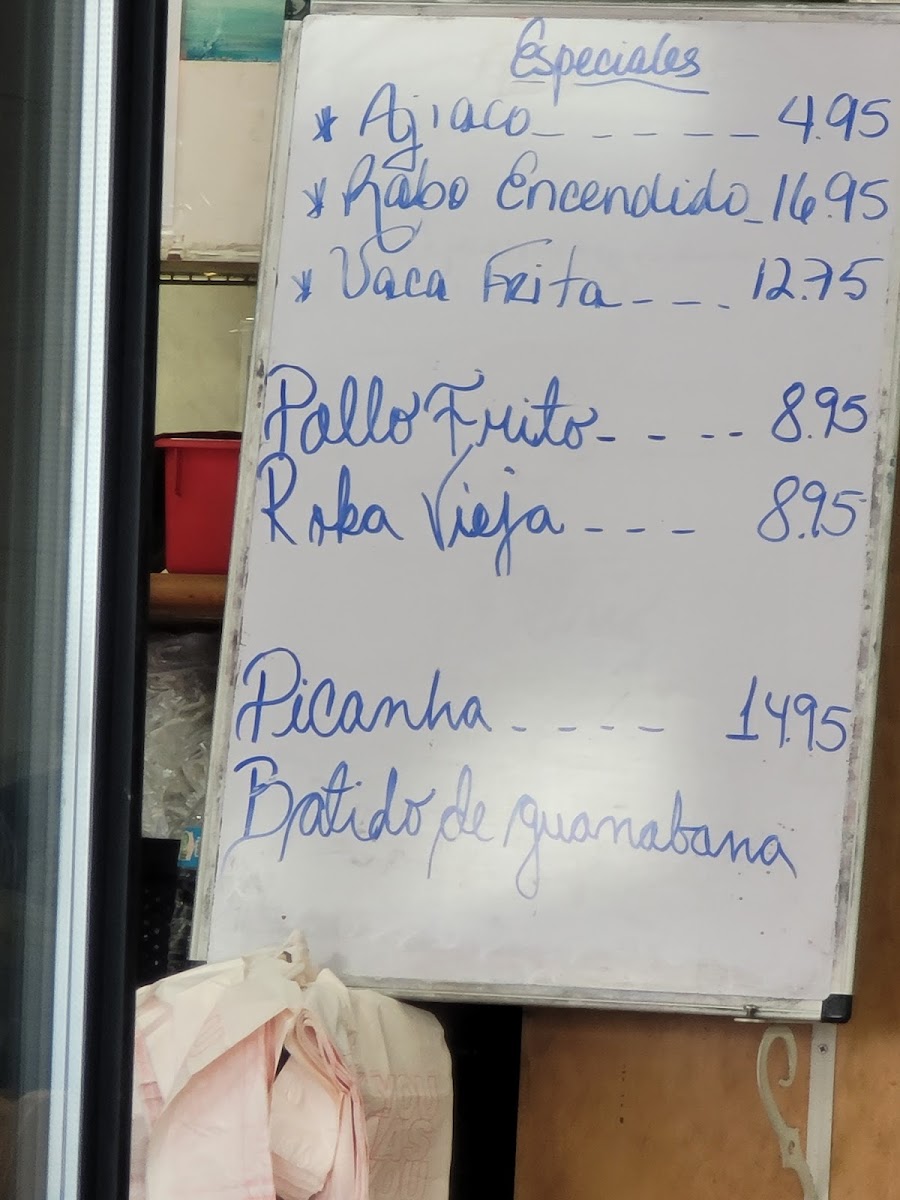 Especiales
* Ajiaco_ _ _ _ _ _ 4.95
* Rabo Encendido_16.95
* Vaca Frita_ _ _. 12.75
Pollo Frito_ _ _ _ 8.95
Roka Vieja _ _ _ 8.95
Picanha _ _ _ _ 14.95
Batido de guanabana
YOU